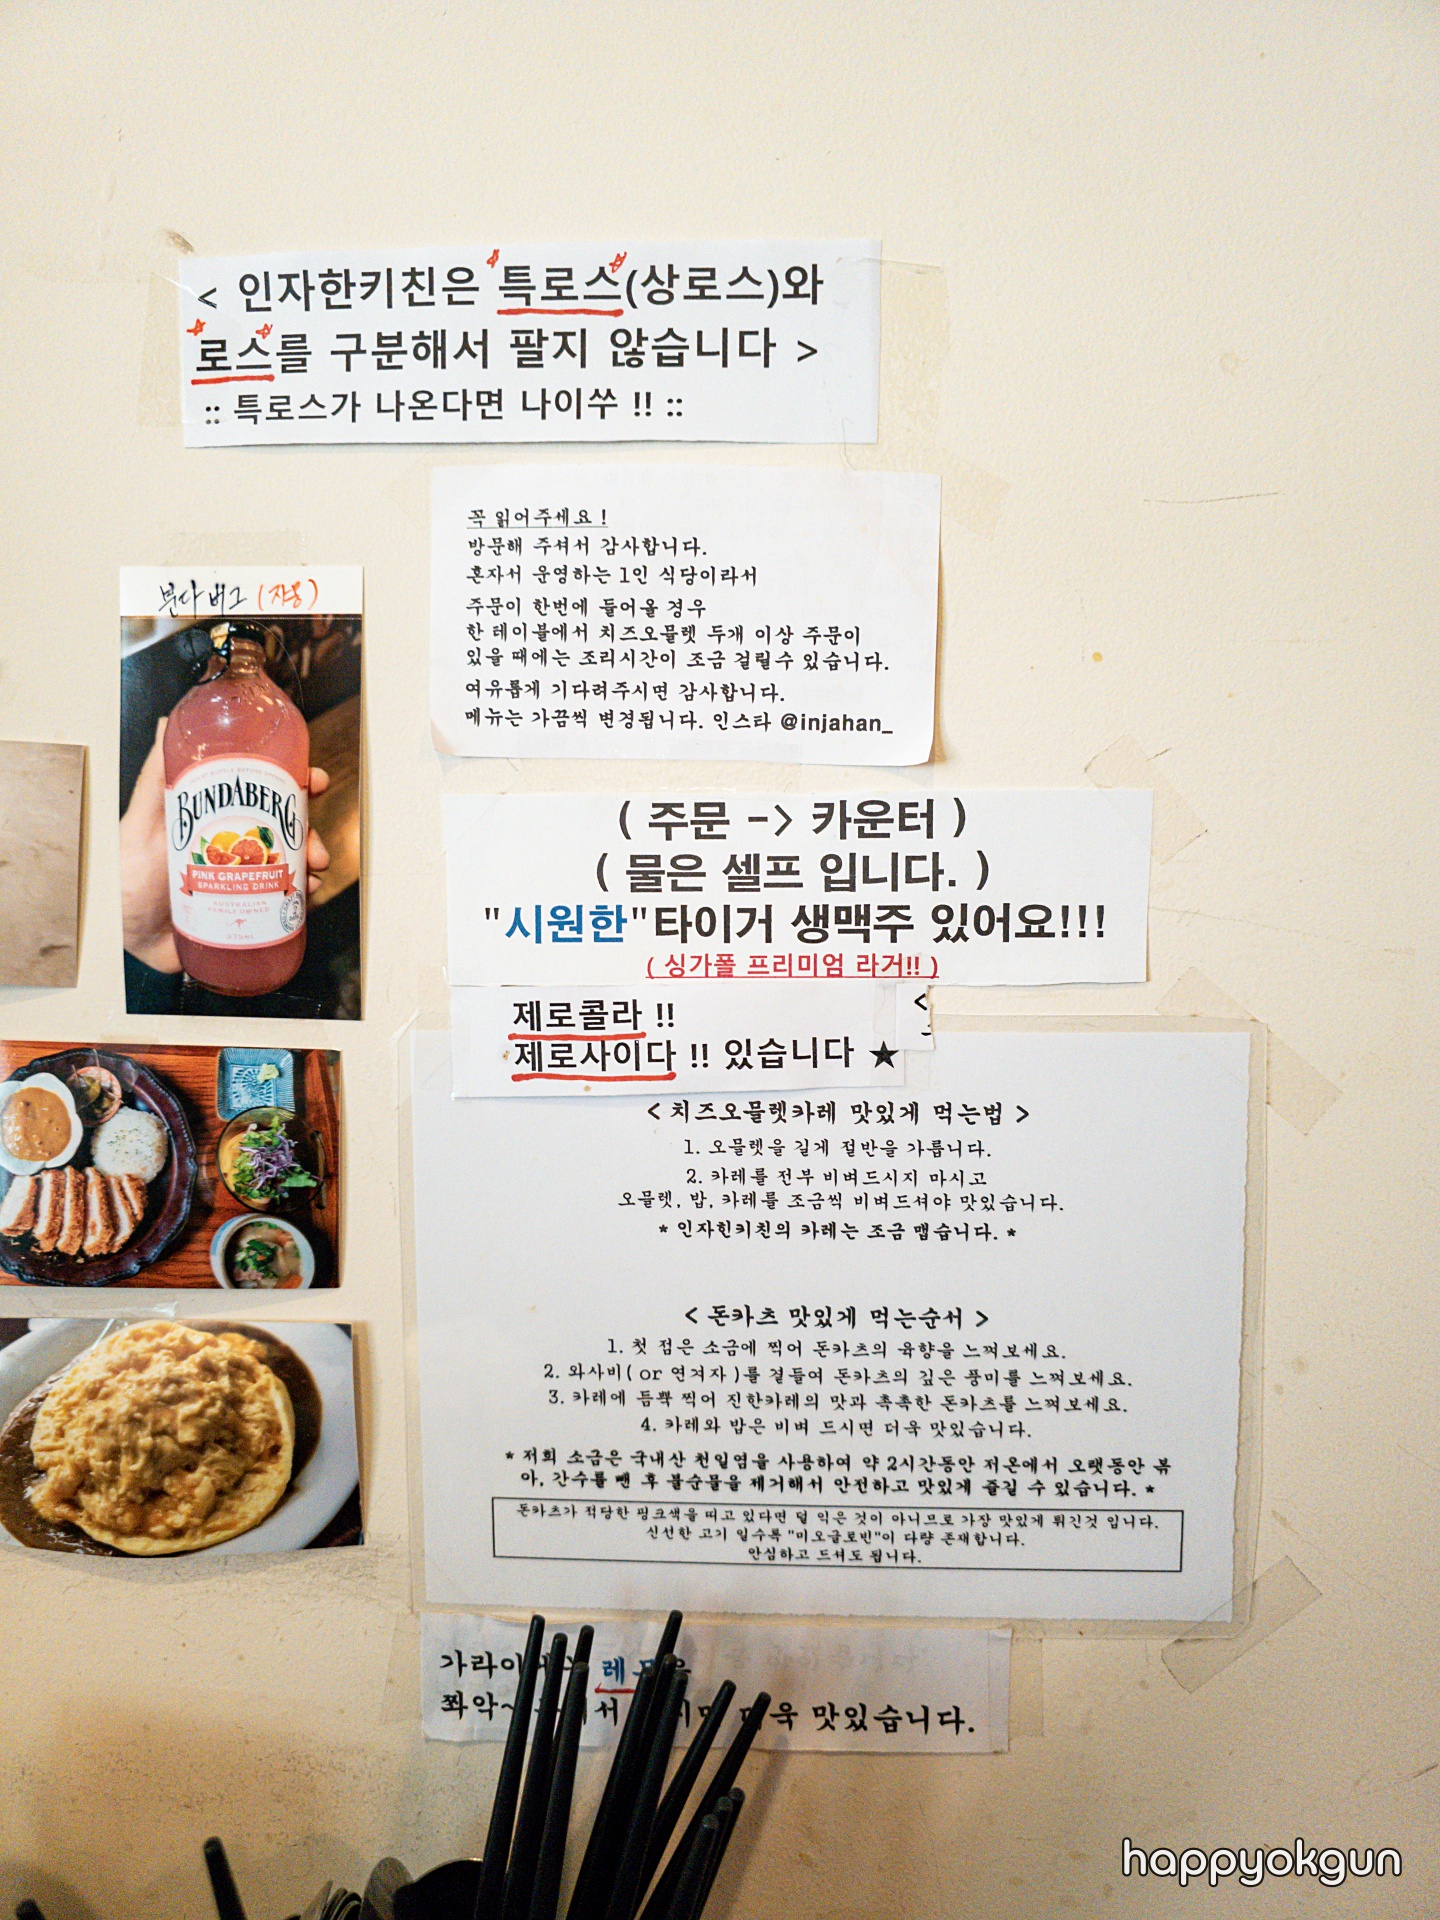 < 인자한키친은 특로스(상로스)와
로스를 구분해서 팔지 않습니다 >
:: 특로스가 나온다면 나이쑤 !! ::
꼭 읽어주세요 !
방문해 주셔서 감사합니다.
혼자서 운영하는 1인 식당이라서
주문이 한번에 들어올 경우
한 테이블에서 치즈오믈렛 두개 이상 주문이
있을 때에는 조리시간이 조금 걸릴수 있습니다.
여유롭게 기다려주시면 감사합니다.
메뉴는 가끔씩 변경됩니다. 인스타 @injahan_
분다버그 (자몽)
BUNDABERG
PINK GRAPEFRUIT
SPARKLING DRINK
AUSTRALIAN
FAMILY OWNED
375mL
( 주문 -> 카운터 )
( 물은 셀프 입니다. )
"시원한"타이거 생맥주 있어요!!!
( 싱가폴 프리미엄 라거!! )
제로콜라 !!
제로사이다 !! 있습니다 ★
< 치즈오믈렛카레 맛있게 먹는법 >
1. 오믈렛을 길게 절반을 가릅니다.
2. 카레를 전부 비벼드시지 마시고
오믈렛, 밥, 카레를 조금씩 비벼드셔야 맛있습니다.
* 인자힌키친의 카레는 조금 맵습니다. *
< 돈카츠 맛있게 먹는순서 >
1. 첫 점은 소금에 찍어 돈카츠의 육향을 느껴보세요.
2. 와사비( or 연겨자 )를 곁들여 돈카츠의 깊은 풍미를 느껴보세요.
3. 카레에 듬뿍 찍어 진한카레의 맛과 촉촉한 돈카츠를 느껴보세요.
4. 카레와 밥은 비벼 드시면 더욱 맛있습니다.
* 저희 소금은 국내산 천일염을 사용하여 약 2시간동안 저온에서 오랫동안 볶
아, 간수를 뺀 후 불순물을 제거해서 안전하고 맛있게 즐길 수 있습니다. *
돈카츠가 적당한 핑크색을 띠고 있다면 덜 익은 것이 아니므로 가장 맛있게 튀긴것 입니다.
신선한 고기 일수록 "미오글로빈"이 다량 존재합니다.
안심하고 드셔도 됩니다.
쫘악~ 맛있습니다.
happyokgun